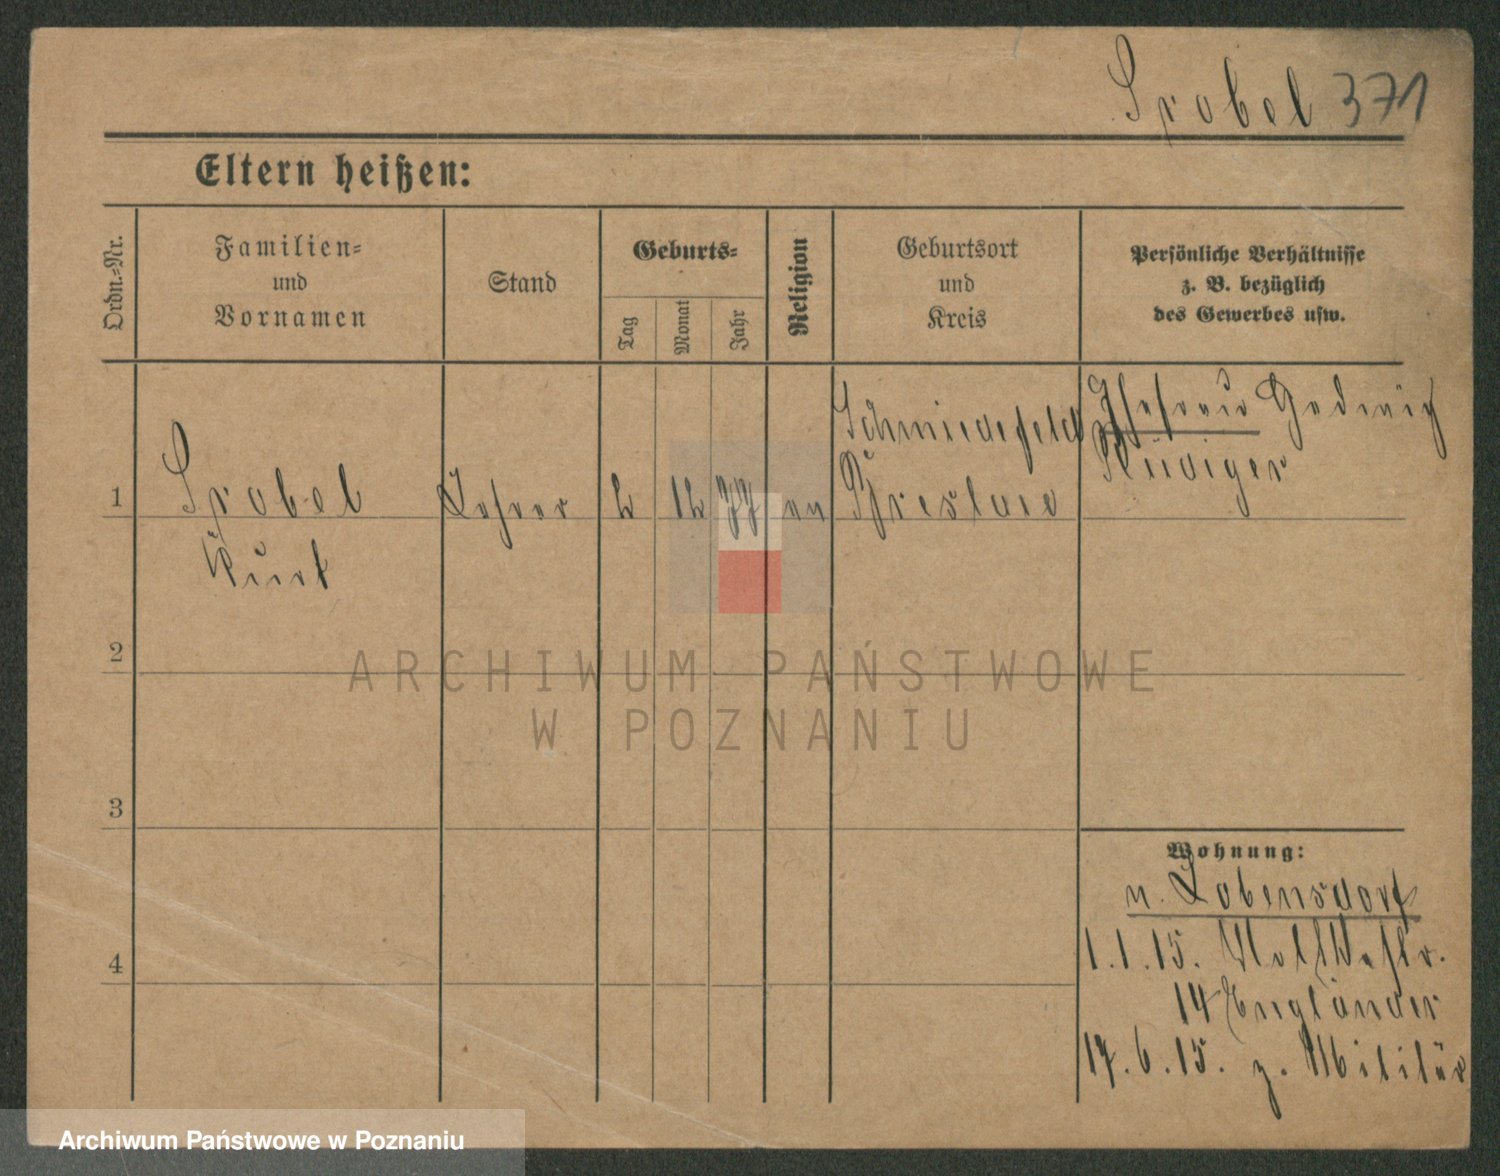 Srobel 371
Eltern heißen:
Ordn.-Nr.
Familien- und Vornamen
Stand
Geburts-
Tag
Monat
Jahr
Religion
Geburtsort und Kreis
Persönliche Verhältnisse z. B. bezüglich des Gewerbes usw.
1
Srobel
Kurt
Lehrer
2
12
77
ev
Schmiedefeld
Breslau
Ehefrau Hedwig
Rüdiger
2
3
4
Wohnung:
n. Lobensdorf
1.1.15.
14 Engländer
17.6.15. z. Militär
ARCHIWUM PAŃSTWOWE
W POZNANIU
Archiwum Państwowe w Poznaniu